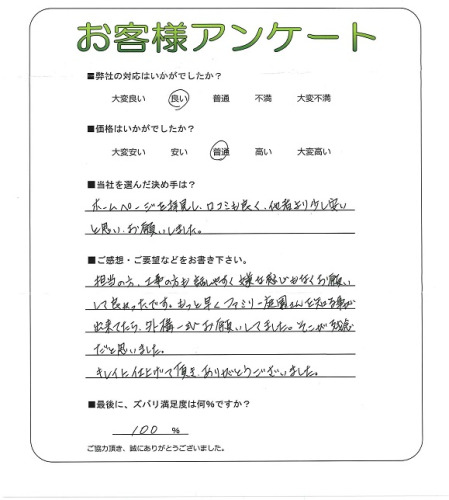 お客様アンケート
■弊社の対応はいかがでしたか?
大変良い 良い 普通 不満 大変不満
■価格はいかがでしたか?
大変安い 安い 普通 高い 大変高い
■当社を選んだ決め手は?
ホームページを拝見し、口コミも良く、他者より少し安い
と思い、お願いしました。
■ご感想・ご要望などをお書き下さい。
担当の方、工事の方も話しやすく嫌な思いもなくお願い
して良かったです。もっと早くファミリー庭園さんを知る事が
出来てたら、外構一式お願いしてました。そこが残念
だと思いました。
キレイに仕上げて頂き、ありがとうございました。
■最後に、ズバリ満足度は何%ですか?
100 %
ご協力頂き、誠にありがとうございました。